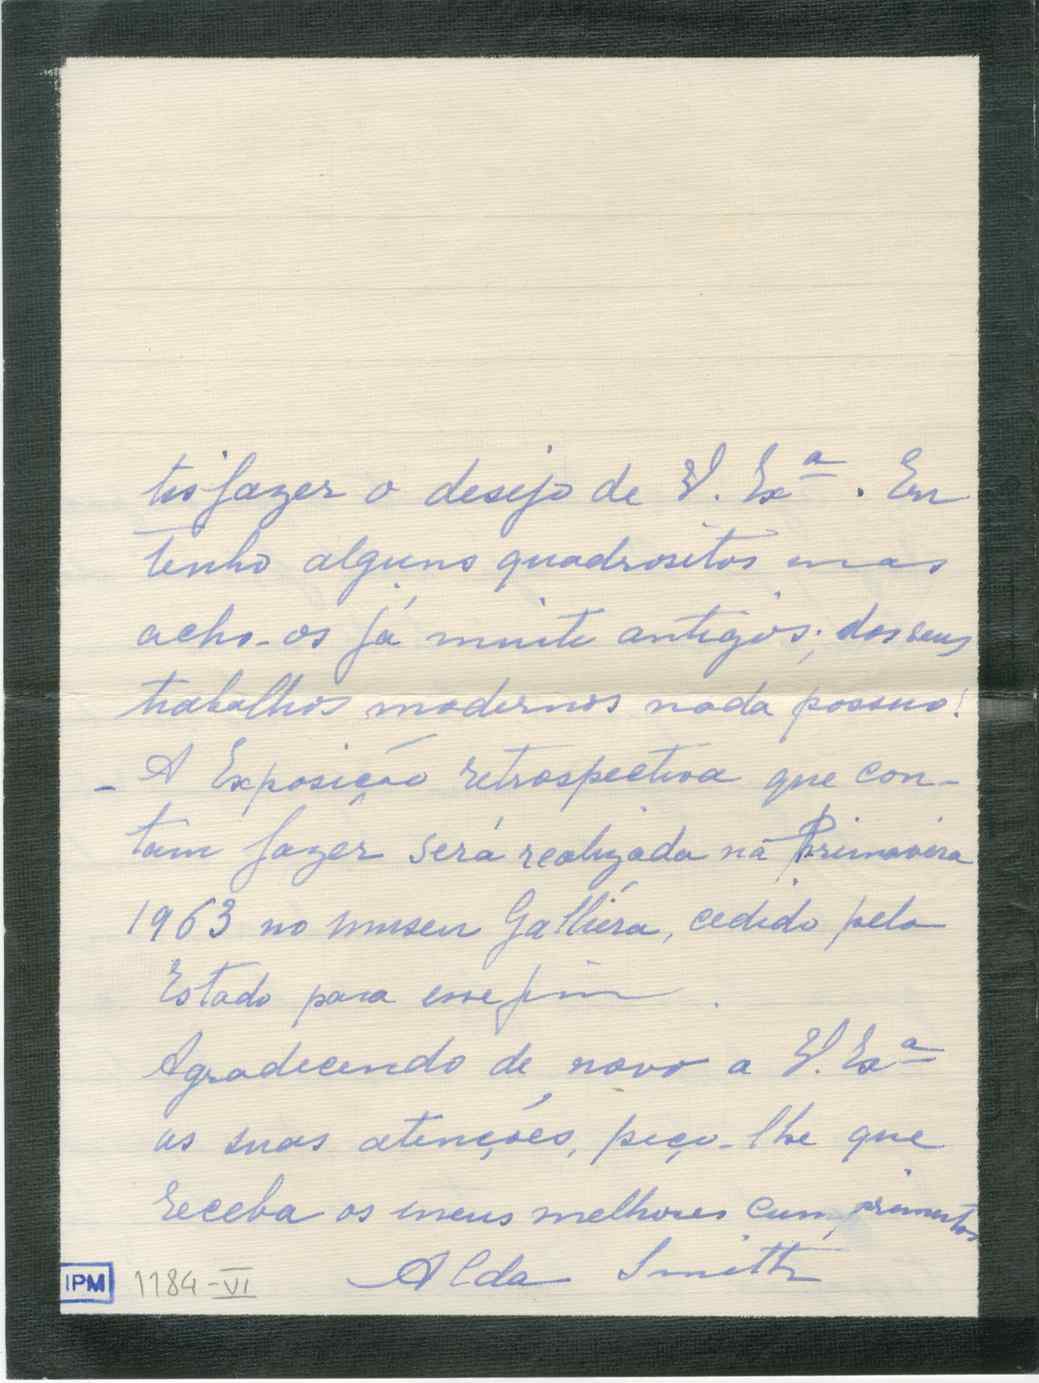 tisfazer o desejo de V. Exª. Eu
tenho alguns quadrositos mas
acho-os já muito antigos; dos seus
trabalhos modernos nada possuo!
- A Exposição retrospectiva que con-
tam fazer será realizada na Primavera
1963 no museu Galliéra, cedido pelo
Estado para esse fim.
Agradecendo de novo a V. Exª
as suas atenções, peço-lhe que
receba os meus melhores cumprimentos
Alda Smith
IPM 1184-VI